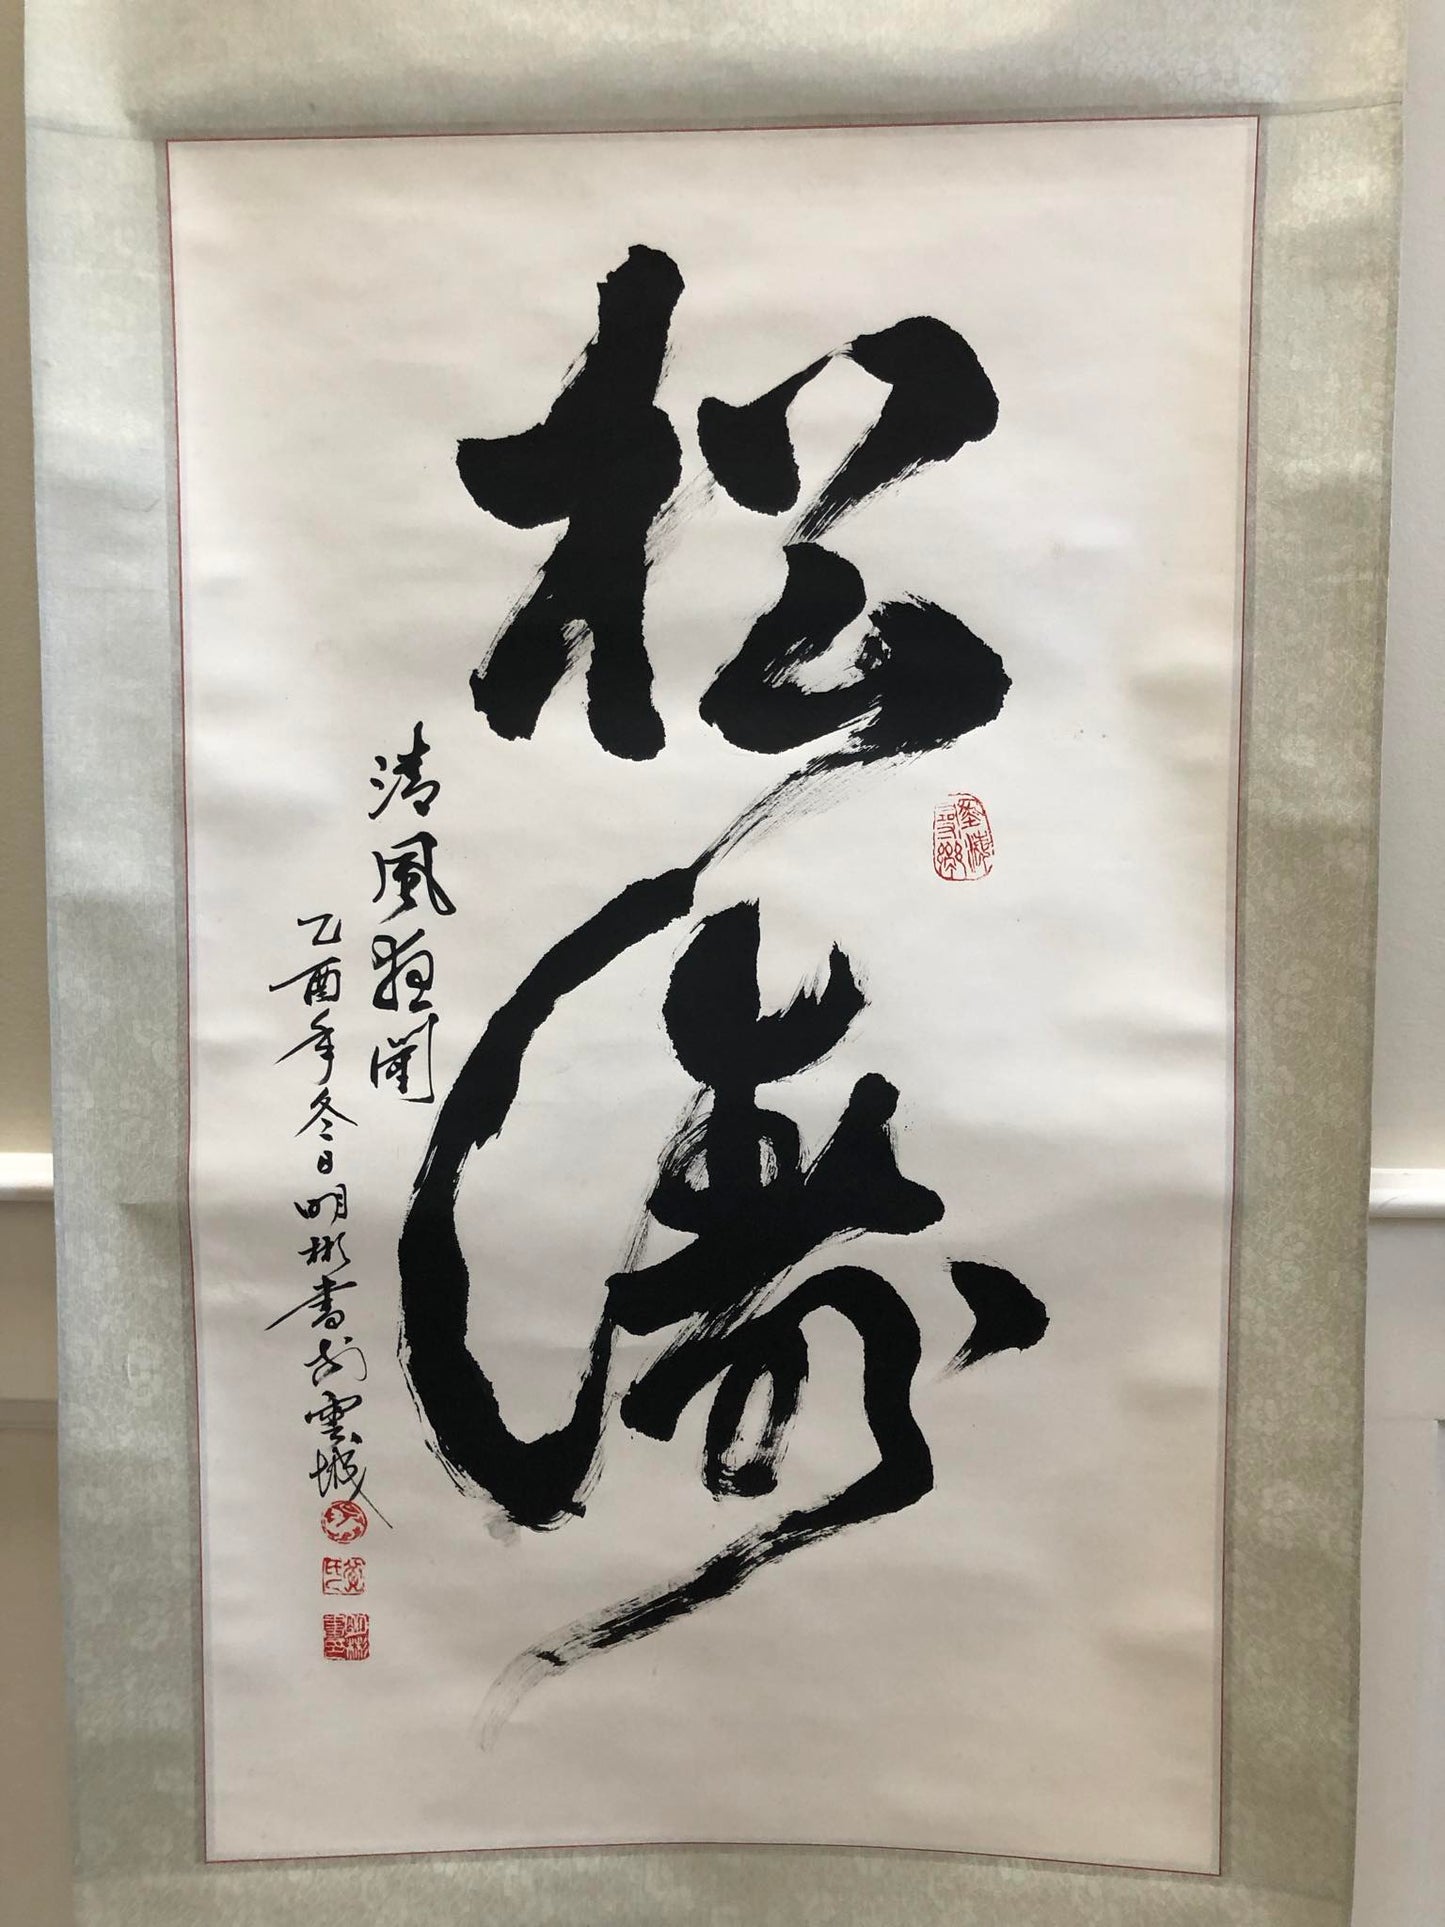 松濤
清風狂闌
乙酉年冬日明彬書於雲城